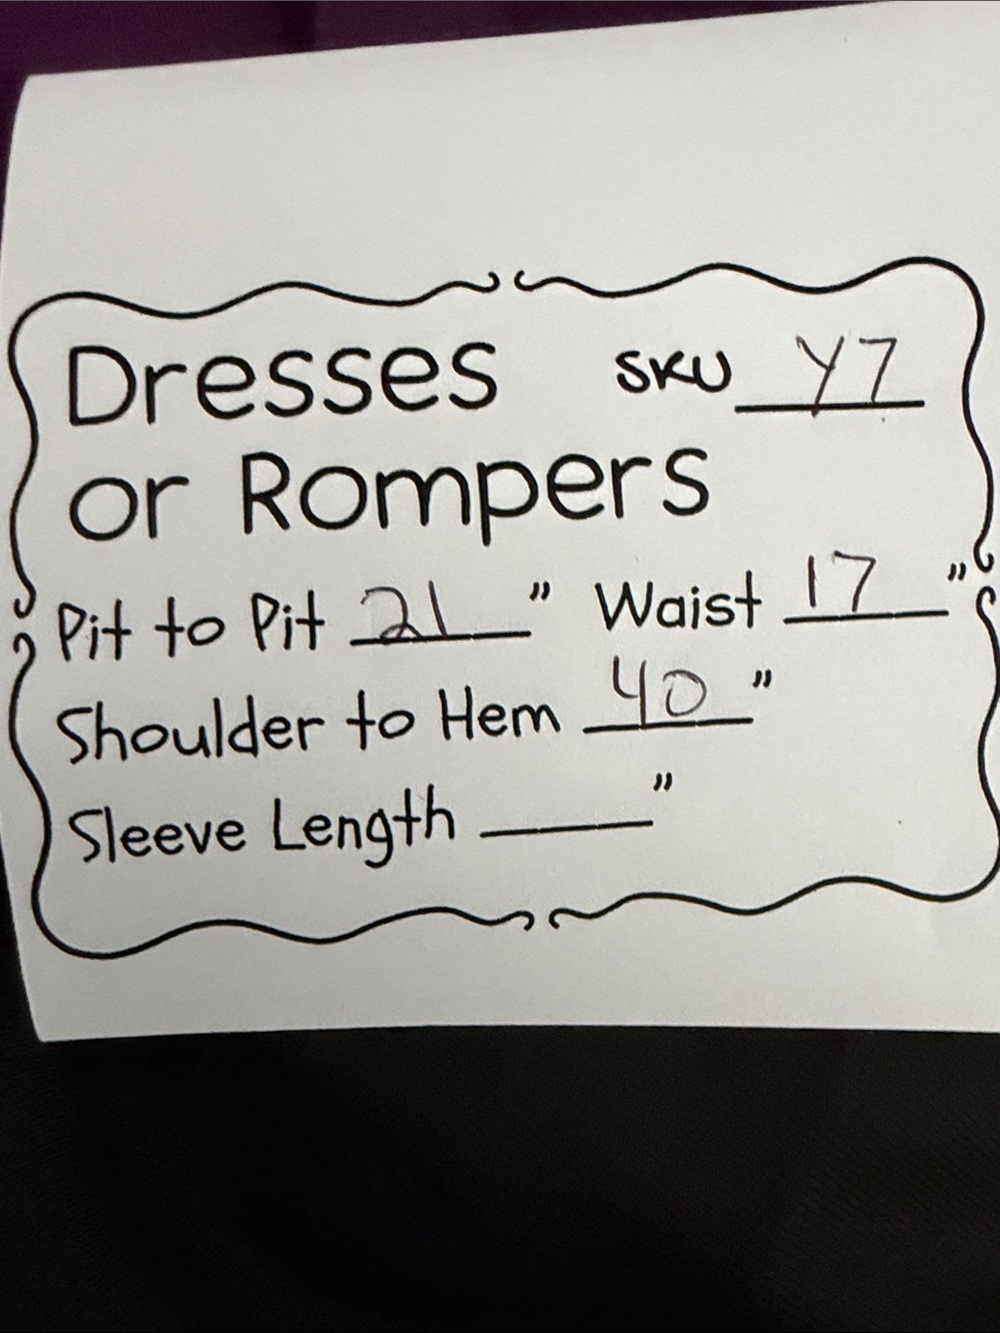 Dresses SKU Y7
or Rompers
Pit to Pit 21" Waist 17"
Shoulder to Hem 40"
Sleeve Length ____"